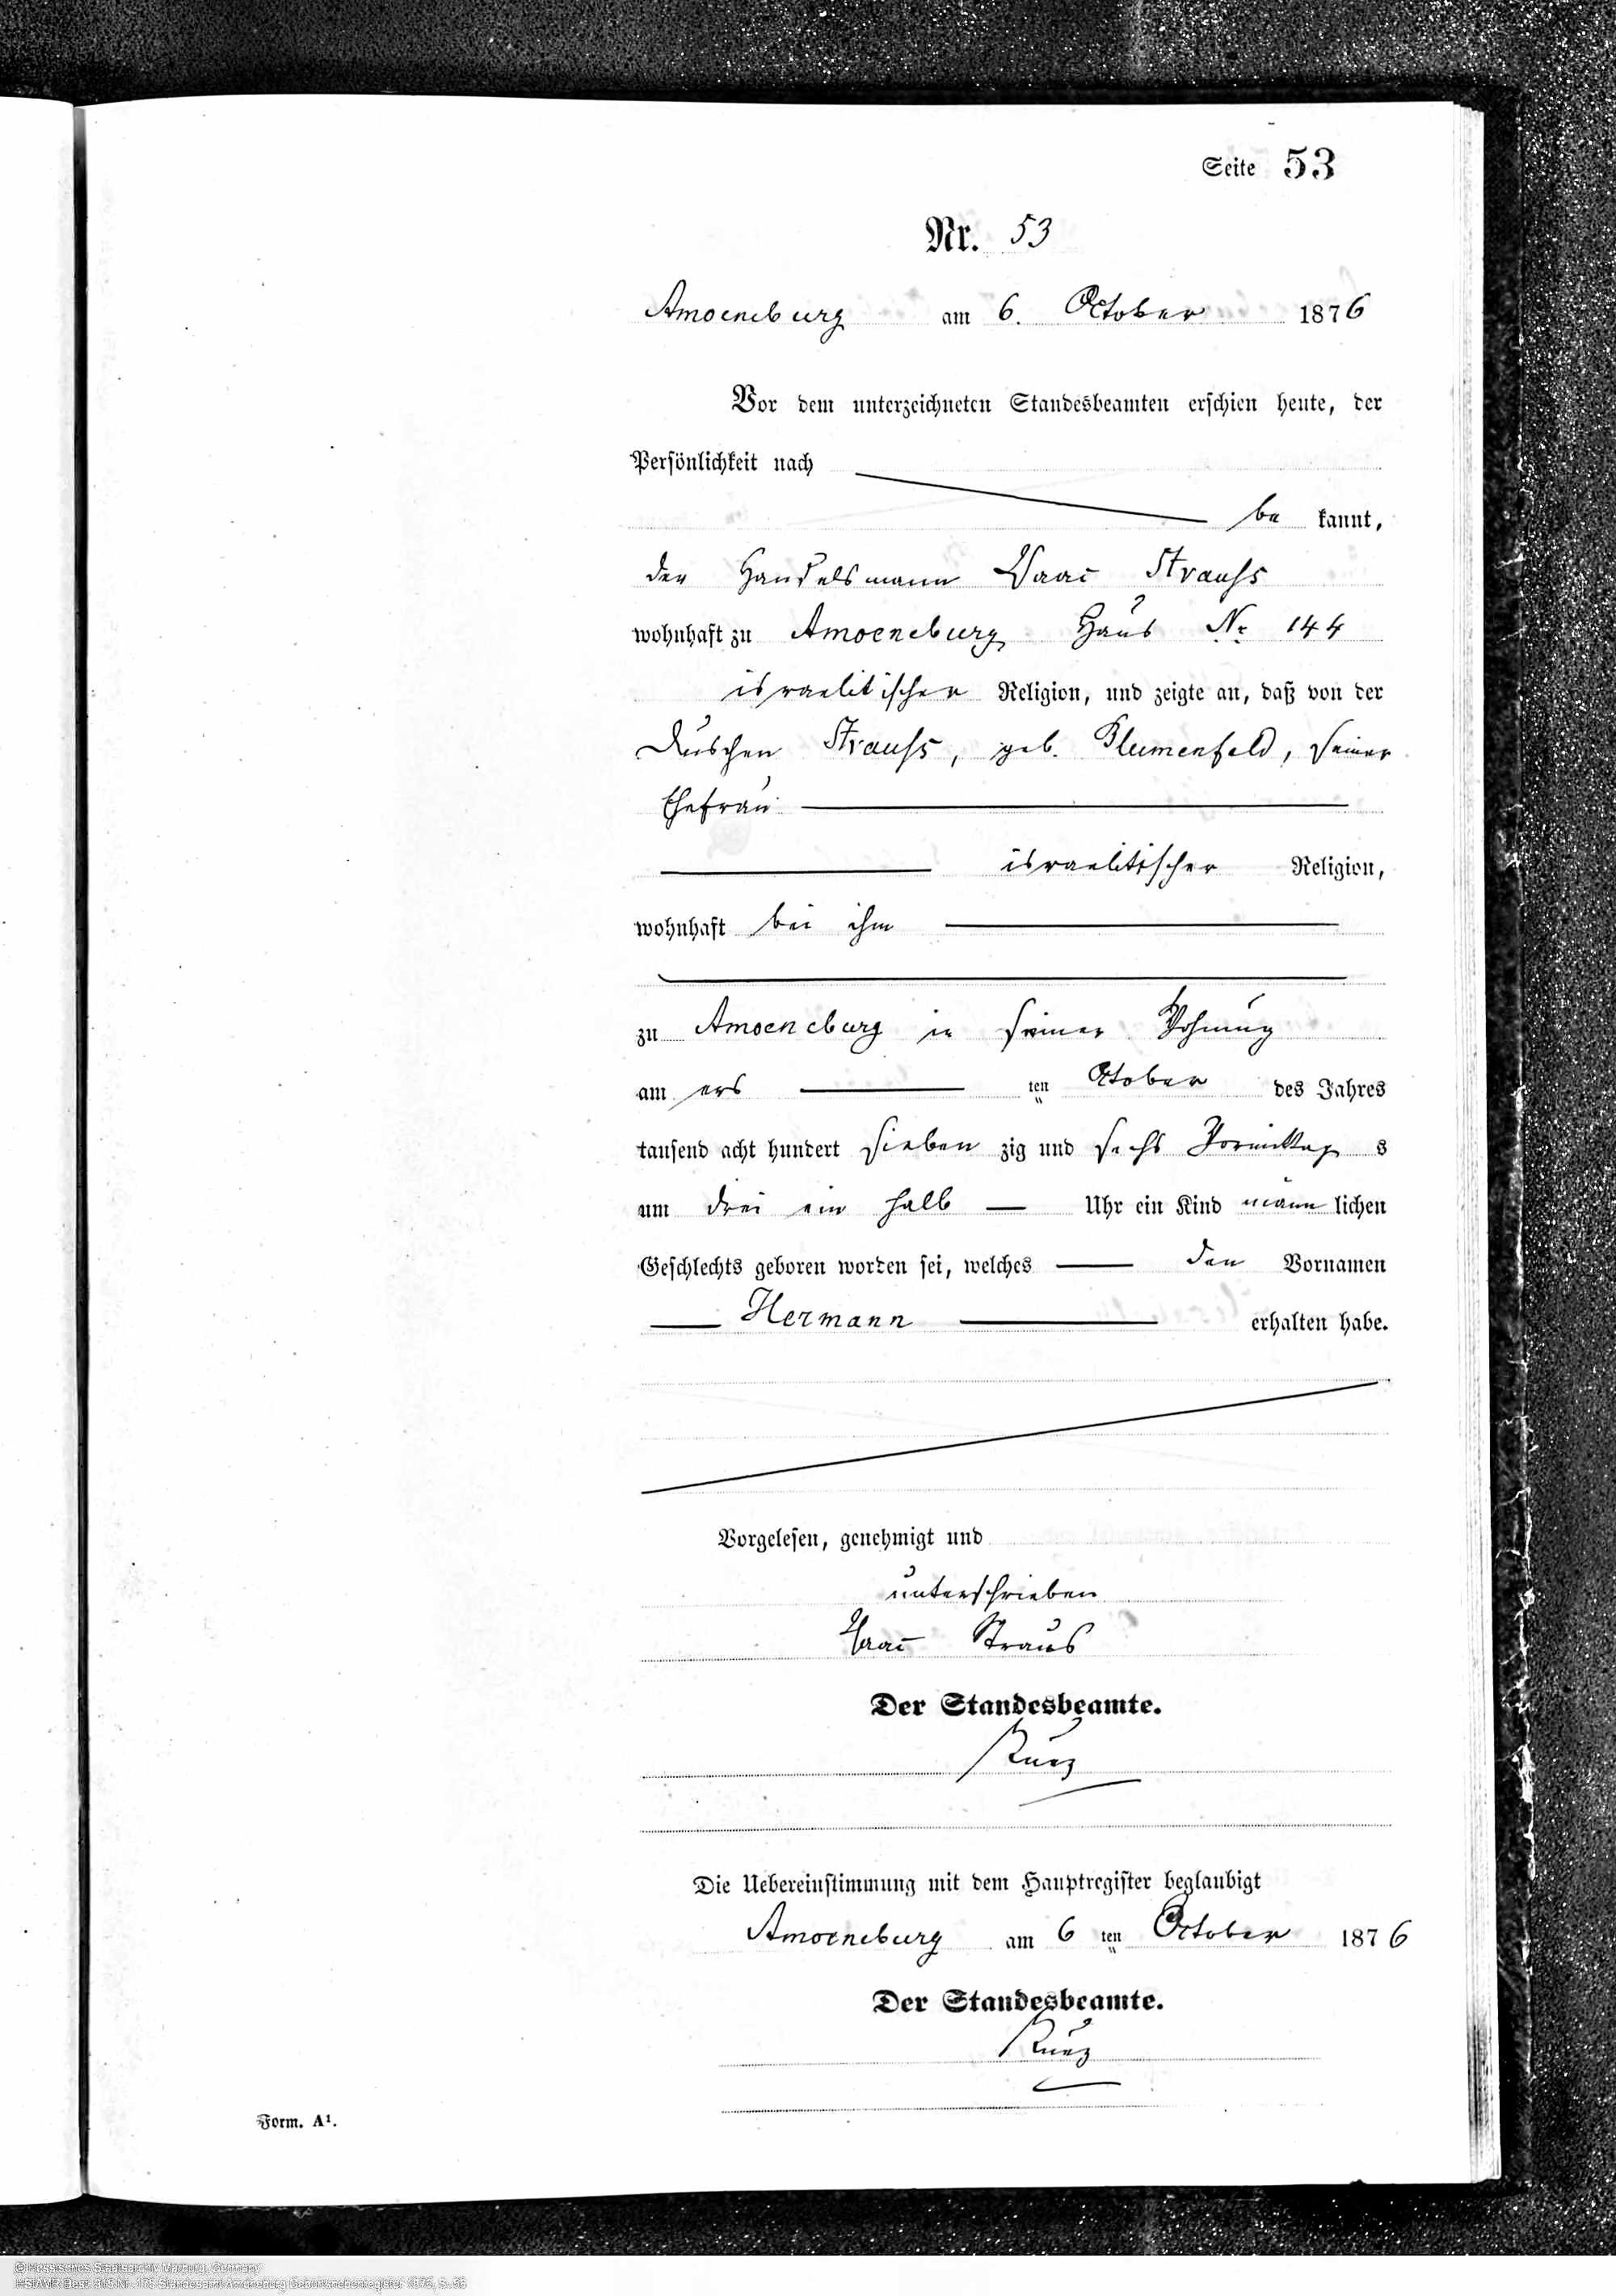 Seite 53
Nr. 53
Amoeneburg am 6. October 1876
Vor dem unterzeichneten Standesbeamten erschien heute, der
Persönlichkeit nach
be kannt,
der Handelsmann Isaac Strauss
wohnhaft zu Amoeneburg Haus Nr 144
israelitischer Religion, und zeigte an, daß von der
Strauss, geb. Blumenfeld, seiner
Ehefrau
israelitischer Religion,
wohnhaft bei ihm
zu Amoeneburg in seiner Wohnung
am ers ten October des Jahres
tausend acht hundert sieben zig und sechs Vormittag s
um drei ein halb Uhr ein Kind männ lichen
Geschlechts geboren worden sei, welches den Vornamen
Hermann erhalten habe.
Vorgelesen, genehmigt und
unterschrieben
Isaac Straus
Der Standesbeamte.
Die Uebereinstimmung mit dem Hauptregister beglaubigt
Amoeneburg am 6 ten October 1876
Der Standesbeamte.
Form. A¹.